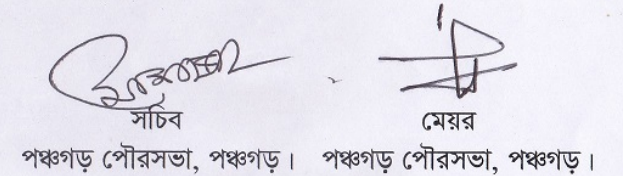 সচিব মেয়র
পঞ্চগড় পৌরসভা, পঞ্চগড়। পঞ্চগড় পৌরসভা, পঞ্চগড়।